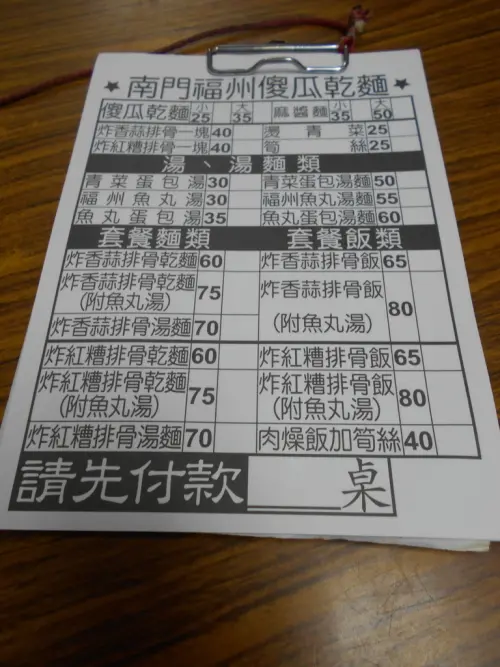 ★南門福州傻瓜乾麵★
傻瓜乾麵 小25 大35 麻醬麵 小35 大50
炸香蒜排骨一塊 40 燙青菜 25
炸紅糟排骨一塊 40 筍絲 25
湯、湯麵類
青菜蛋包湯 30 青菜蛋包湯麵 50
福州魚丸湯 30 福州魚丸湯麵 55
魚丸蛋包湯 35 魚丸蛋包湯麵 60
套餐麵類 套餐飯類
炸香蒜排骨乾麵 60 炸香蒜排骨飯 65
炸香蒜排骨乾麵(附魚丸湯) 75 炸香蒜排骨飯(附魚丸湯) 80
炸香蒜排骨湯麵 70
炸紅糟排骨乾麵 60 炸紅糟排骨飯 65
炸紅糟排骨乾麵(附魚丸湯) 75 炸紅糟排骨飯(附魚丸湯) 80
炸紅糟排骨湯麵 70 肉燥飯加筍絲 40
請先付款 ____桌